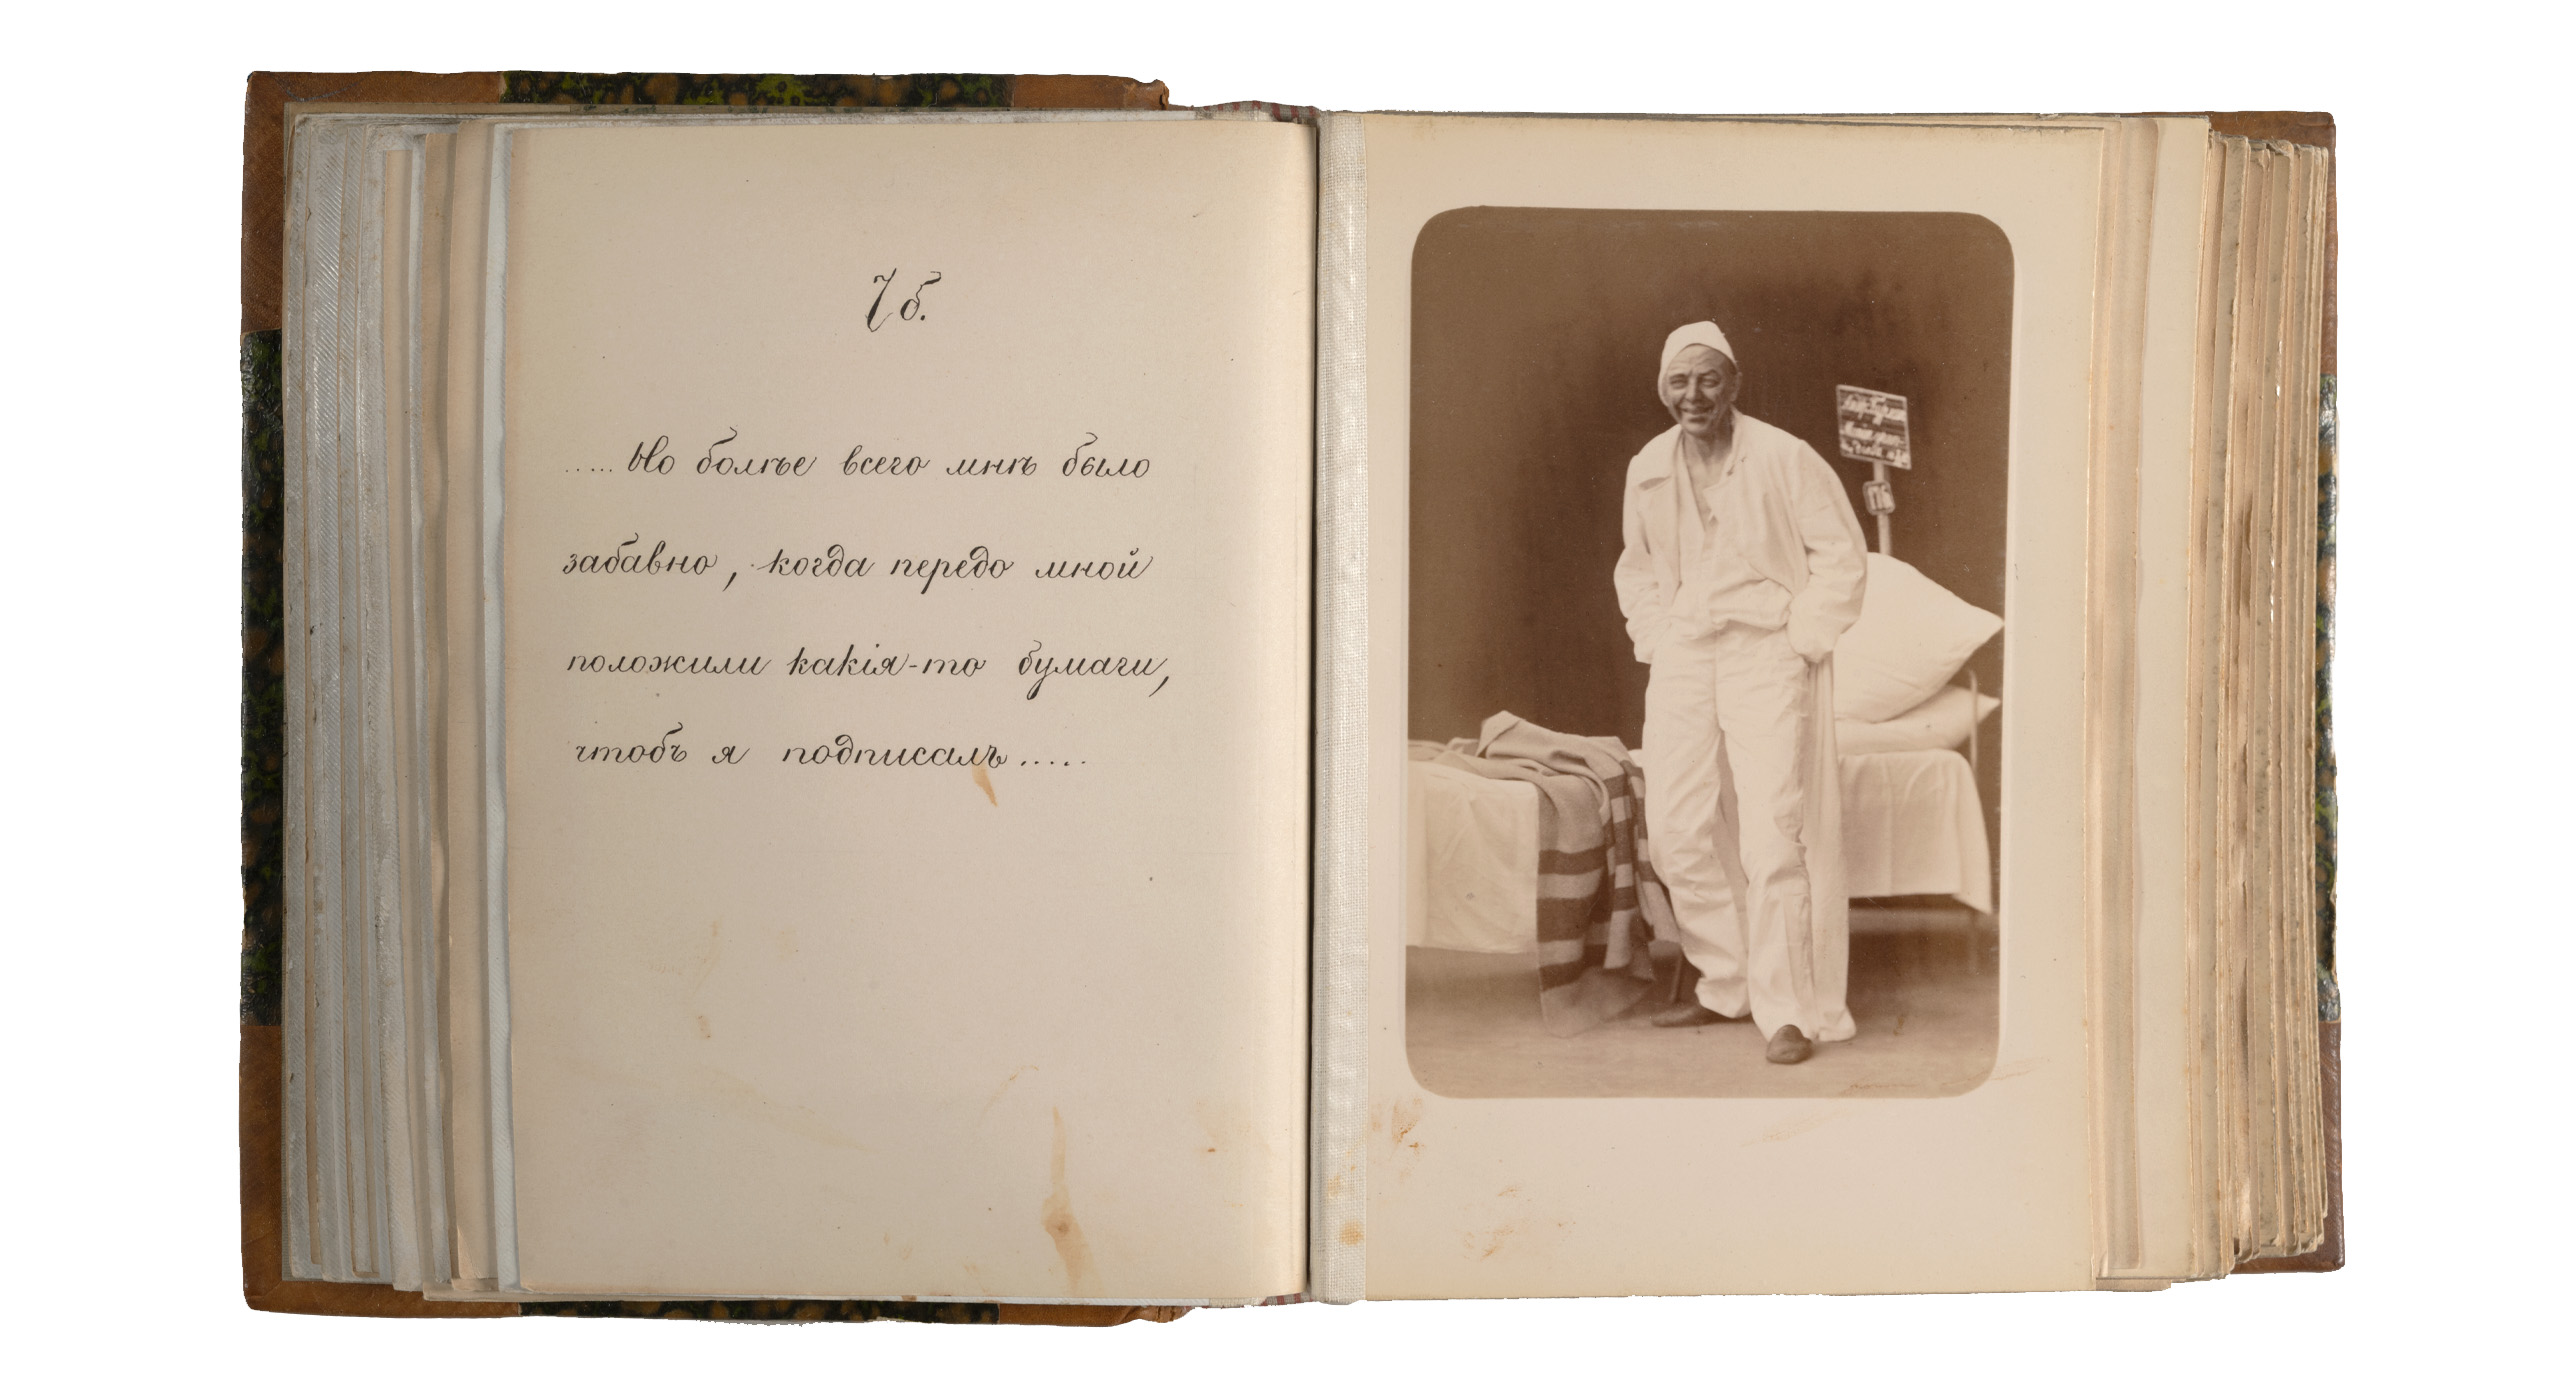 7б.
..... Но болѣе всего мнѣ было
забавно, когда передо мной
положили какія-то бумаги,
чтобъ я подписалъ.....